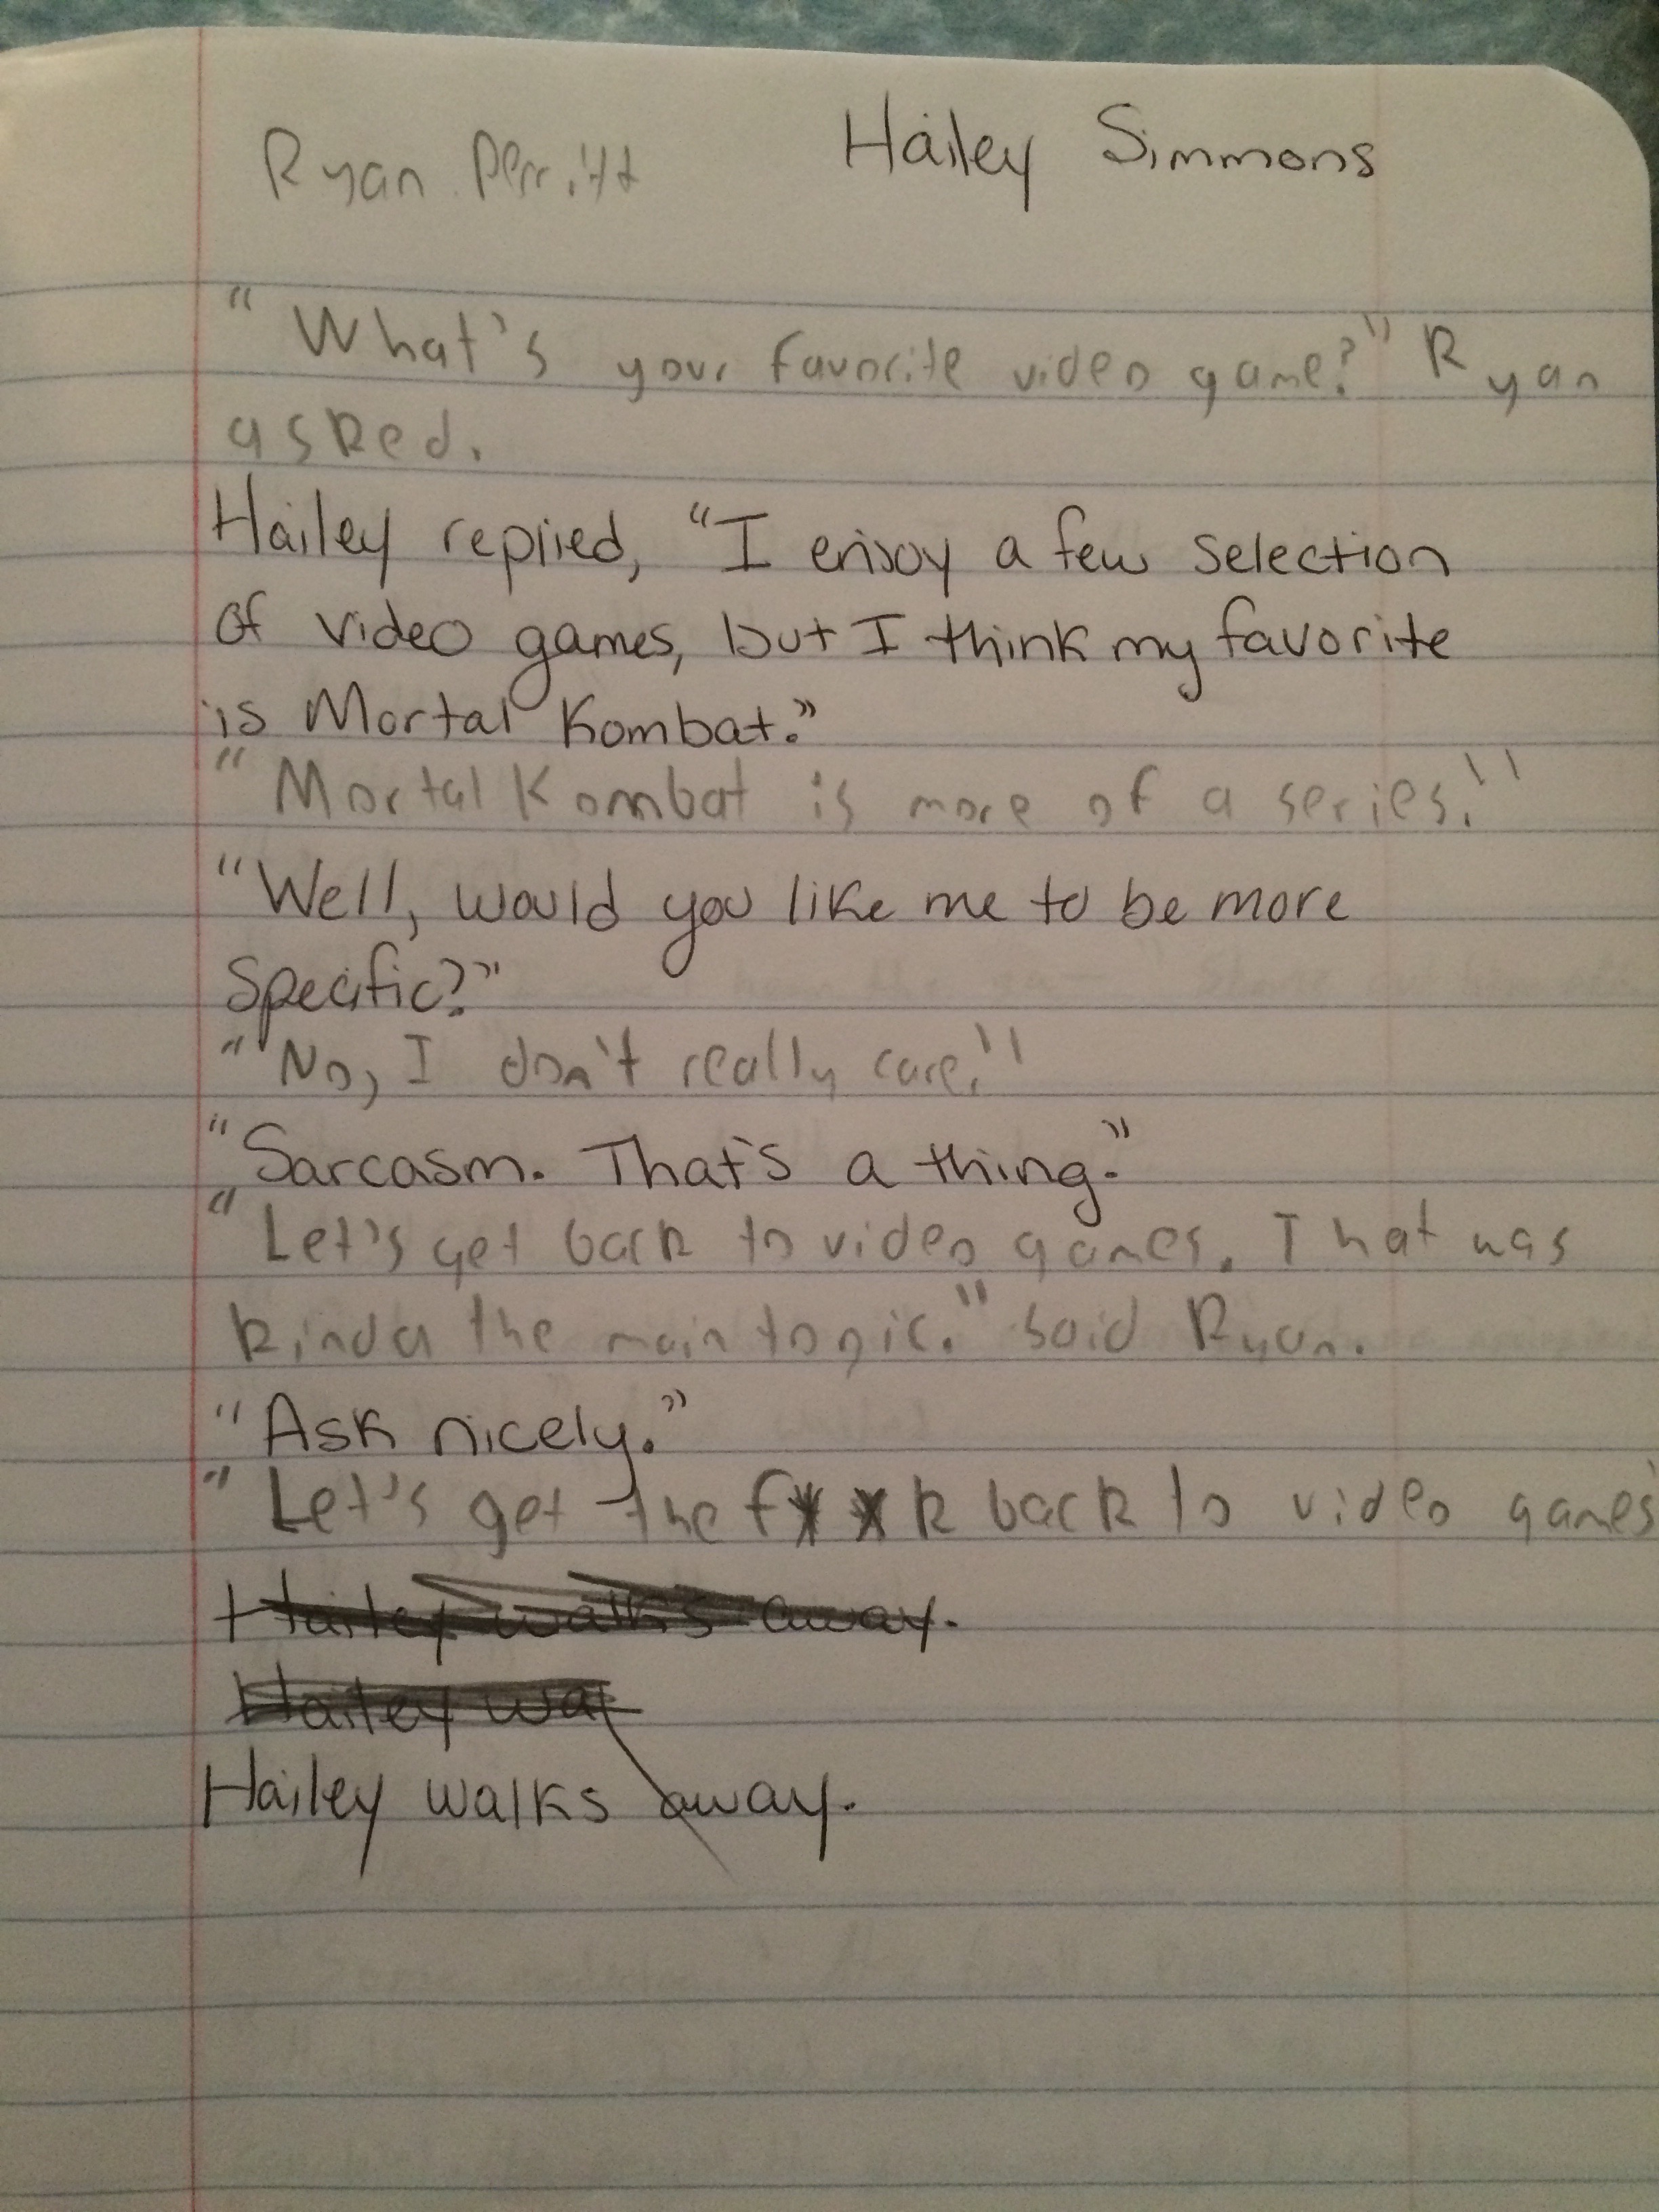 Ryan Perritt Hailey Simmons
"What's your favorite video game?" Ryan
asked.
Hailey replied, "I enjoy a few selection
of video games, but I think my favorite
is Mortal Kombat."
"Mortal Kombat is more of a series."
"Well, would you like me to be more
specific?"
"No, I don't really care."
"Sarcasm. That's a thing."
"Let's get back to video games. That was
kinda the main topic." said Ryan.
"Ask nicely."
"Let's get the f**k back to video games"
Hailey walks away.
Hailey wal
Hailey walks away.